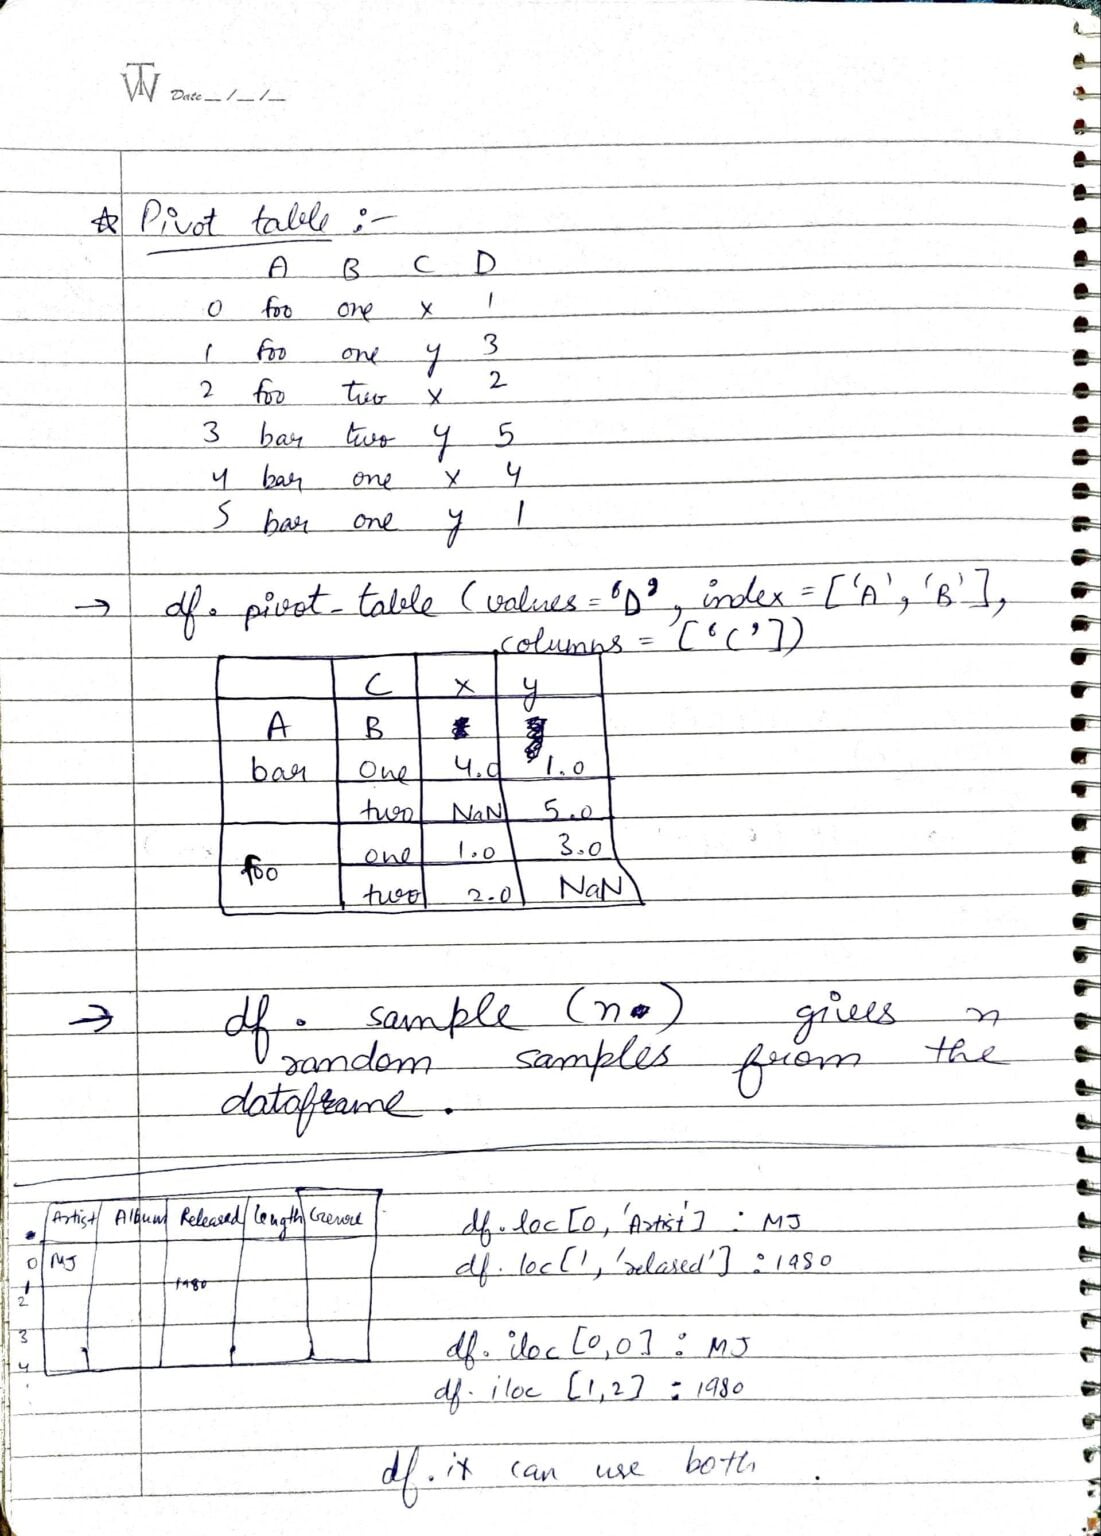 TW Date _/_/_
☆ Pivot table :-
A B C D
0 foo one x 1
1 foo one y 3
2 foo two x 2
3 bar two y 5
4 bar one x 4
5 bar one y 1
→ df. pivot-table (values = 'D', index = ['A', 'B'],
columns = ['C'])
C x y
A B
bar one 4.0 1.0
two NaN 5.0
foo one 1.0 3.0
two 2.0 NaN
→ df. sample (n) gives n
random samples from the
dataframe.
Artist Album Released length Genere
0 MJ
1 1980
2
3
4
df. loc [0, 'Artist'] : MJ
df. loc [1, 'relased'] : 1980
df. iloc [0,0] : MJ
df. iloc [1,2] : 1980
df. ix can use both.